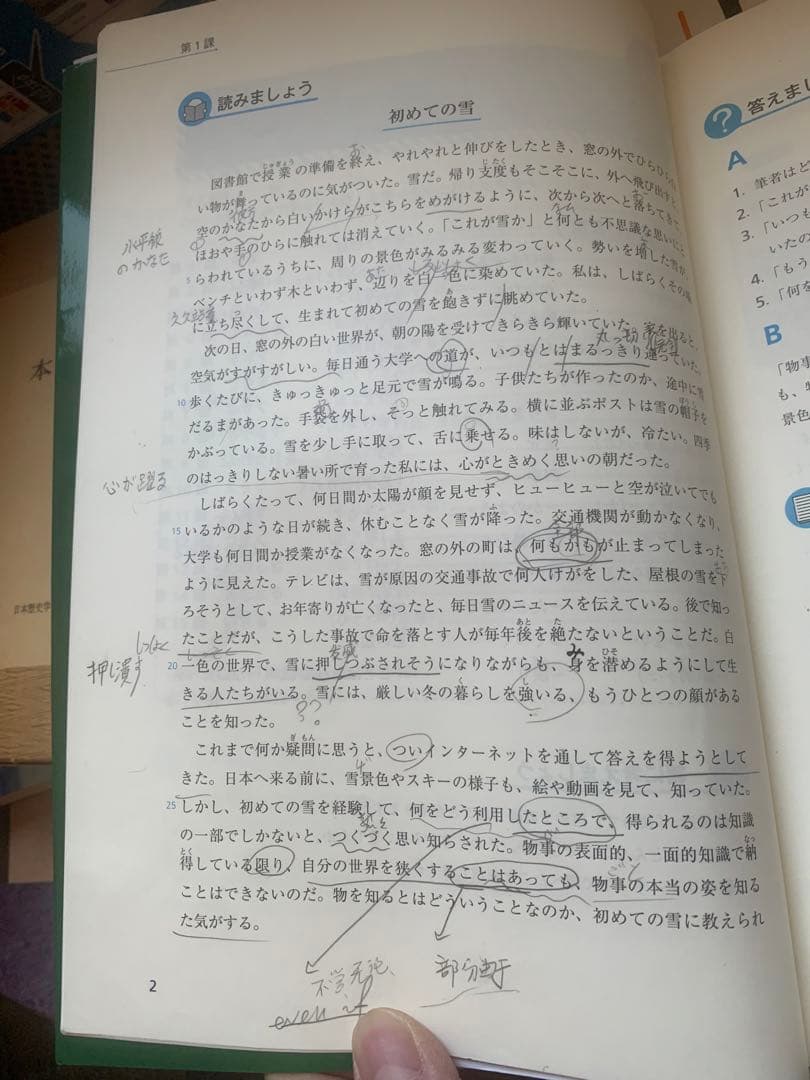 第1課
読みましょう
初めての雪
図書館で授業の準備を終え、やれやれと伸びをしたとき、窓の外でひらひら
い物が舞っているのに気がついた。雪だ。帰り支度もそこそこに、外へ飛び出すと、
空のかなたから白いかけらがこちらをめがけるように、次から次へと落ちてきて、
ほおや手のひらに触れては消えていく。「これが雪か」と何とも不思議な思いに
5 らわれているうちに、周りの景色がみるみる変わっていく。勢いを増した雪が、
ベンチといわず木といわず、辺りを白一色に染めていた。私は、しばらくその場
に立ち尽くして、生まれて初めての雪を飽きずに眺めていた。
次の日、窓の外の白い世界が、朝の陽を受けてきらきら輝いていた。家を出ると、
空気がすがすがしい。毎日通う大学への道が、いつもとはまるっきり違っていた。
10 歩くたびに、きゅっきゅっと足元で雪が鳴る。子供たちが作ったのか、途中に雪
だるまがあった。手袋を外し、そっと触れてみる。横に並ぶポストは雪の帽子を
かぶっている。雪を少し手に取って、舌に乗せる。味はしないが、冷たい。四季
のはっきりしない暑い所で育った私には、心がときめく思いの朝だった。
しばらくたって、何日間か太陽が顔を見せず、ヒューヒューと空が泣いてでも
15 いるかのような日が続き、休むことなく雪が降った。交通機関が動かなくなり、
大学も何日間か授業がなくなった。窓の外の町は、何もかもが止まってしまった
ように見えた。テレビは、雪が原因の交通事故で何人けがをした、屋根の雪を下
ろそうとして、お年寄りが亡くなったと、毎日雪のニュースを伝えている。後で知っ
たことだが、こうした事故で命を落とす人が毎年後を絶たないということだ。白
20 一色の世界で、雪に押しつぶされそうになりながらも、身を潜めるようにして生
きる人たちがいる。雪には、厳しい冬の暮らしを強いる、もうひとつの顔がある
ことを知った。
これまで何か疑問に思うと、ついインターネットを通して答えを得ようとして
きた。日本へ来る前に、雪景色やスキーの様子も、絵や動画を見て、知っていた。
25 しかし、初めての雪を経験して、何をどう利用したところで、得られるのは知識
の一部でしかないと、つくづく思い知らされた。物事の表面的、一面的知識で納
得している限り、自分の世界を狭くすることはあっても、物事の本当の姿を知る
ことはできないのだ。物を知るとはどういうことなのか、初めての雪に教えられ
た気がする。
水平線
のかなた
心が踊る
しっそく
押し潰す
不学无论、
even if
部分肯定
2
答えまし
A
1. 筆者はど
2. 「これが
3. 「いつも
いたの
4. 「もう
5. 「何を
B
「物事
も、物
景色
本
日本歴史学